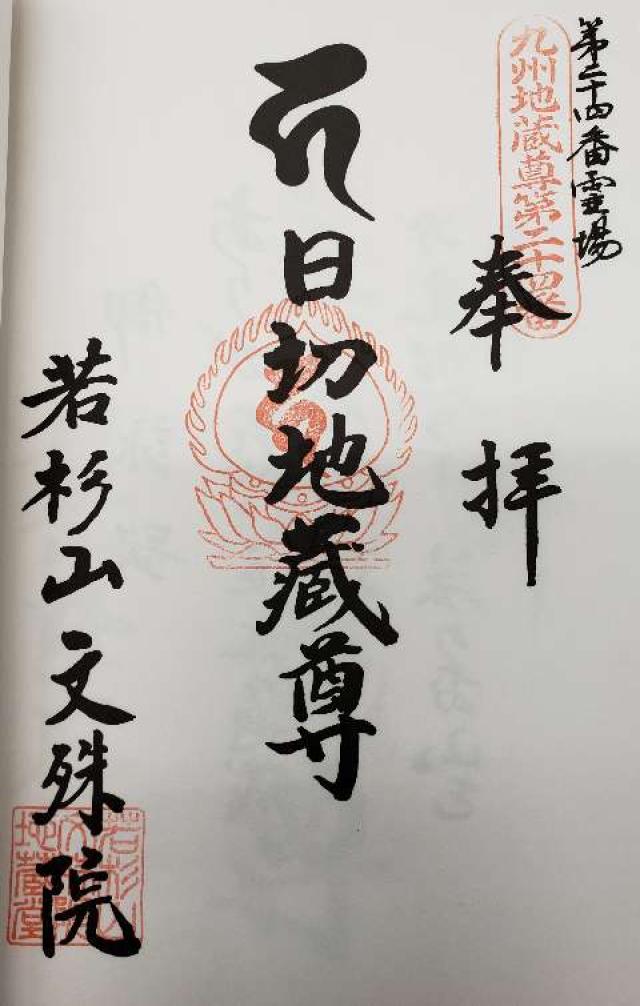 第二十四番霊場
九州地蔵尊第二十四番
奉拝
日切地蔵尊
若杉山文殊院
若杉山
文殊院
地蔵堂